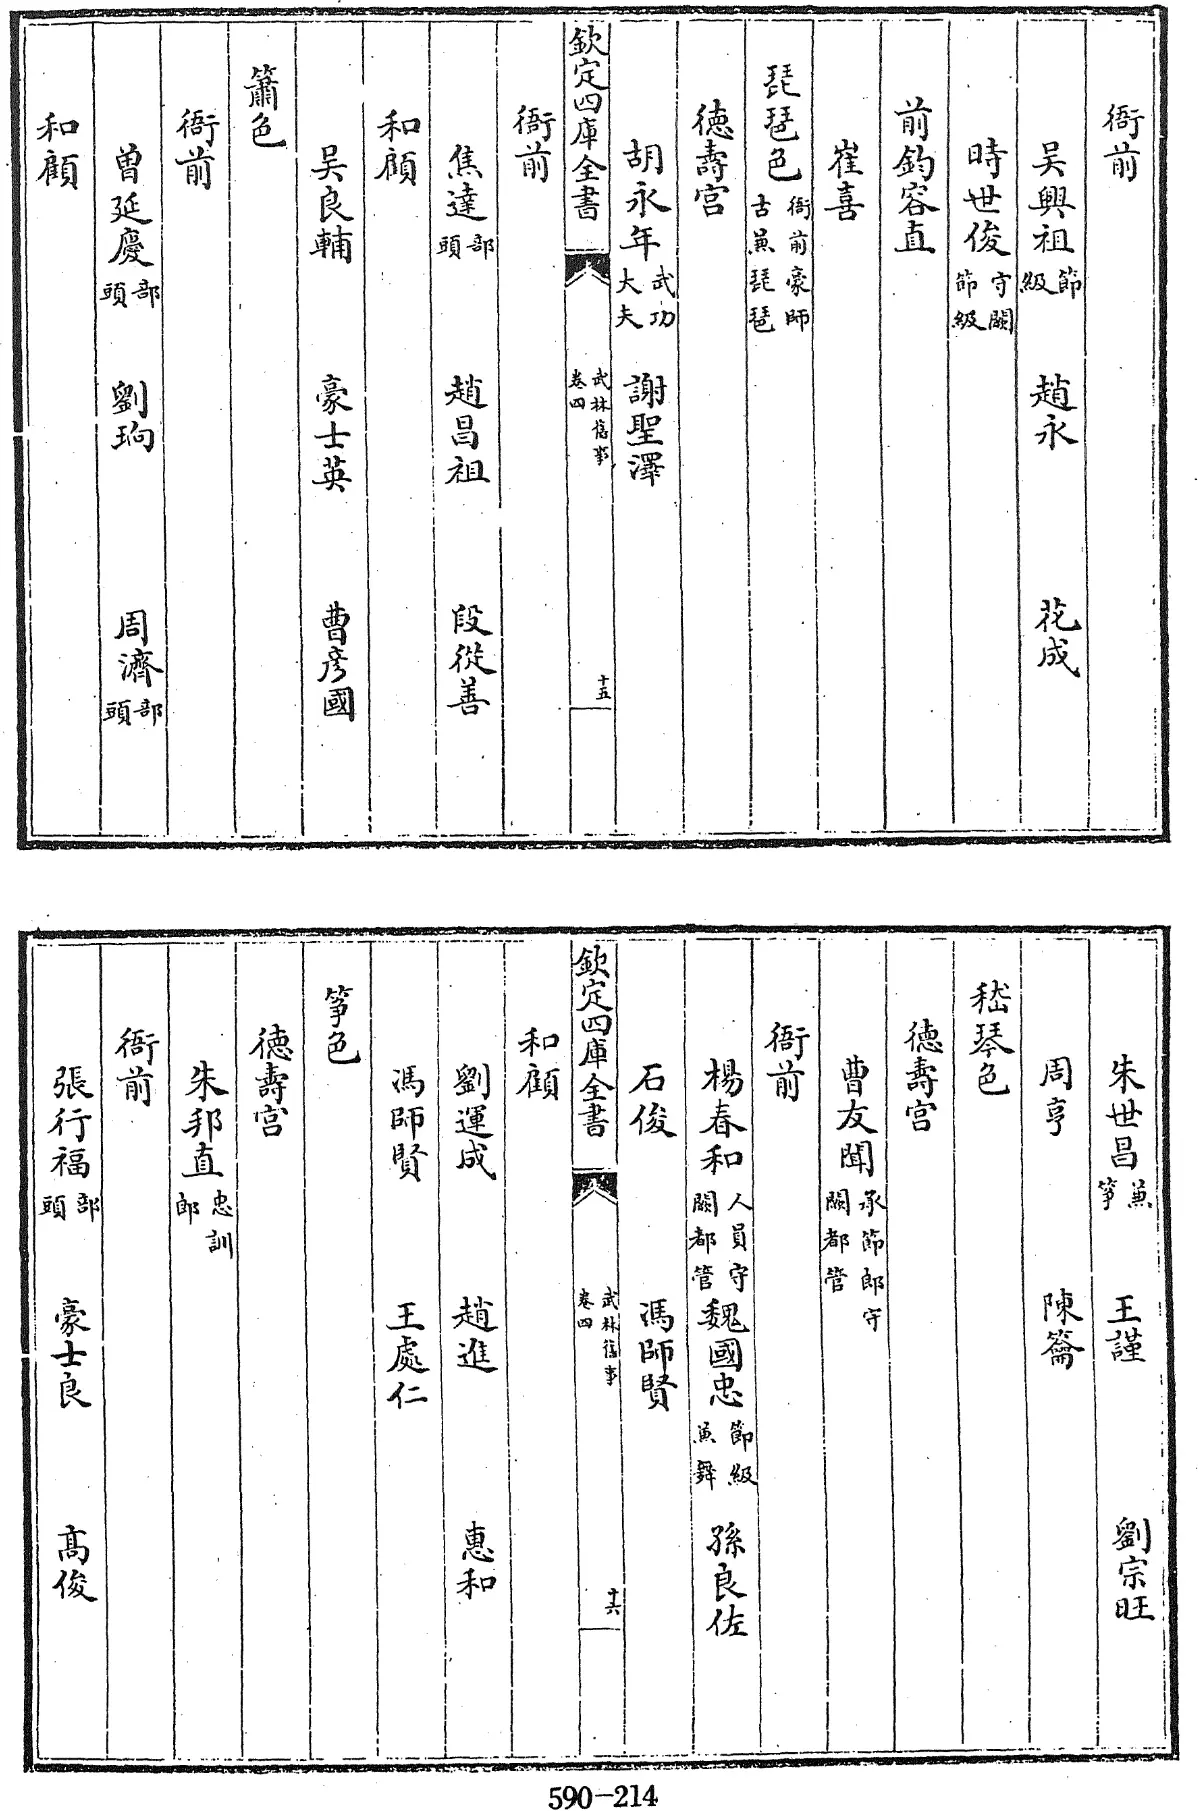 衙前
吴興祖節級 趙永 花成
時世俊守闕節級
前鈞容直
崔喜
琵琶色衙前豪師古兼琵琶
徳壽宫
胡永年武功大夫 謝聖澤
欽定四庫全書 武林舊事卷四 十五
衙前
焦達部頭 趙昌祖 段從善
和顧
吴良輔 豪士英 曹彦國
簫色
衙前
曽延慶部頭 劉珦 周濟部頭
和顧
朱世昌兼箏 王謹 劉宗旺
周亨 陳籥
嵇琴色
徳壽宫
曹友聞承節郎守闕都管
衙前
楊春和人員守闕都管 魏國忠節級兼舞 孫良佐
石俊 馮師賢
欽定四庫全書 武林舊事卷四 十六
和顧
劉運成 趙進 惠和
馮師賢 王處仁
箏色
徳壽宫
朱邦直忠訓郎
衙前
張行福部頭 豪士良 髙俊
590-214